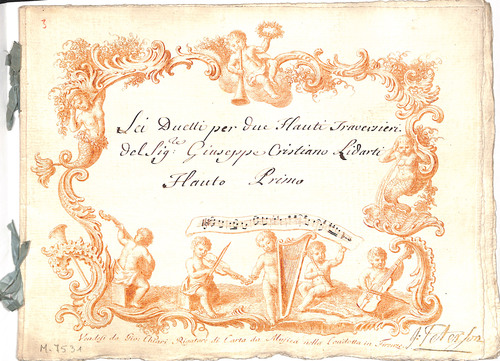 Sei Duetti per due Flauti Traversieri.
del Sig.re Giuseppe Cristiano Lidarti
Flauto Primo
Vendesi da Gio: Chiari, Rigatore di Carta da Musica nella Condotta in Firenze
M-7531